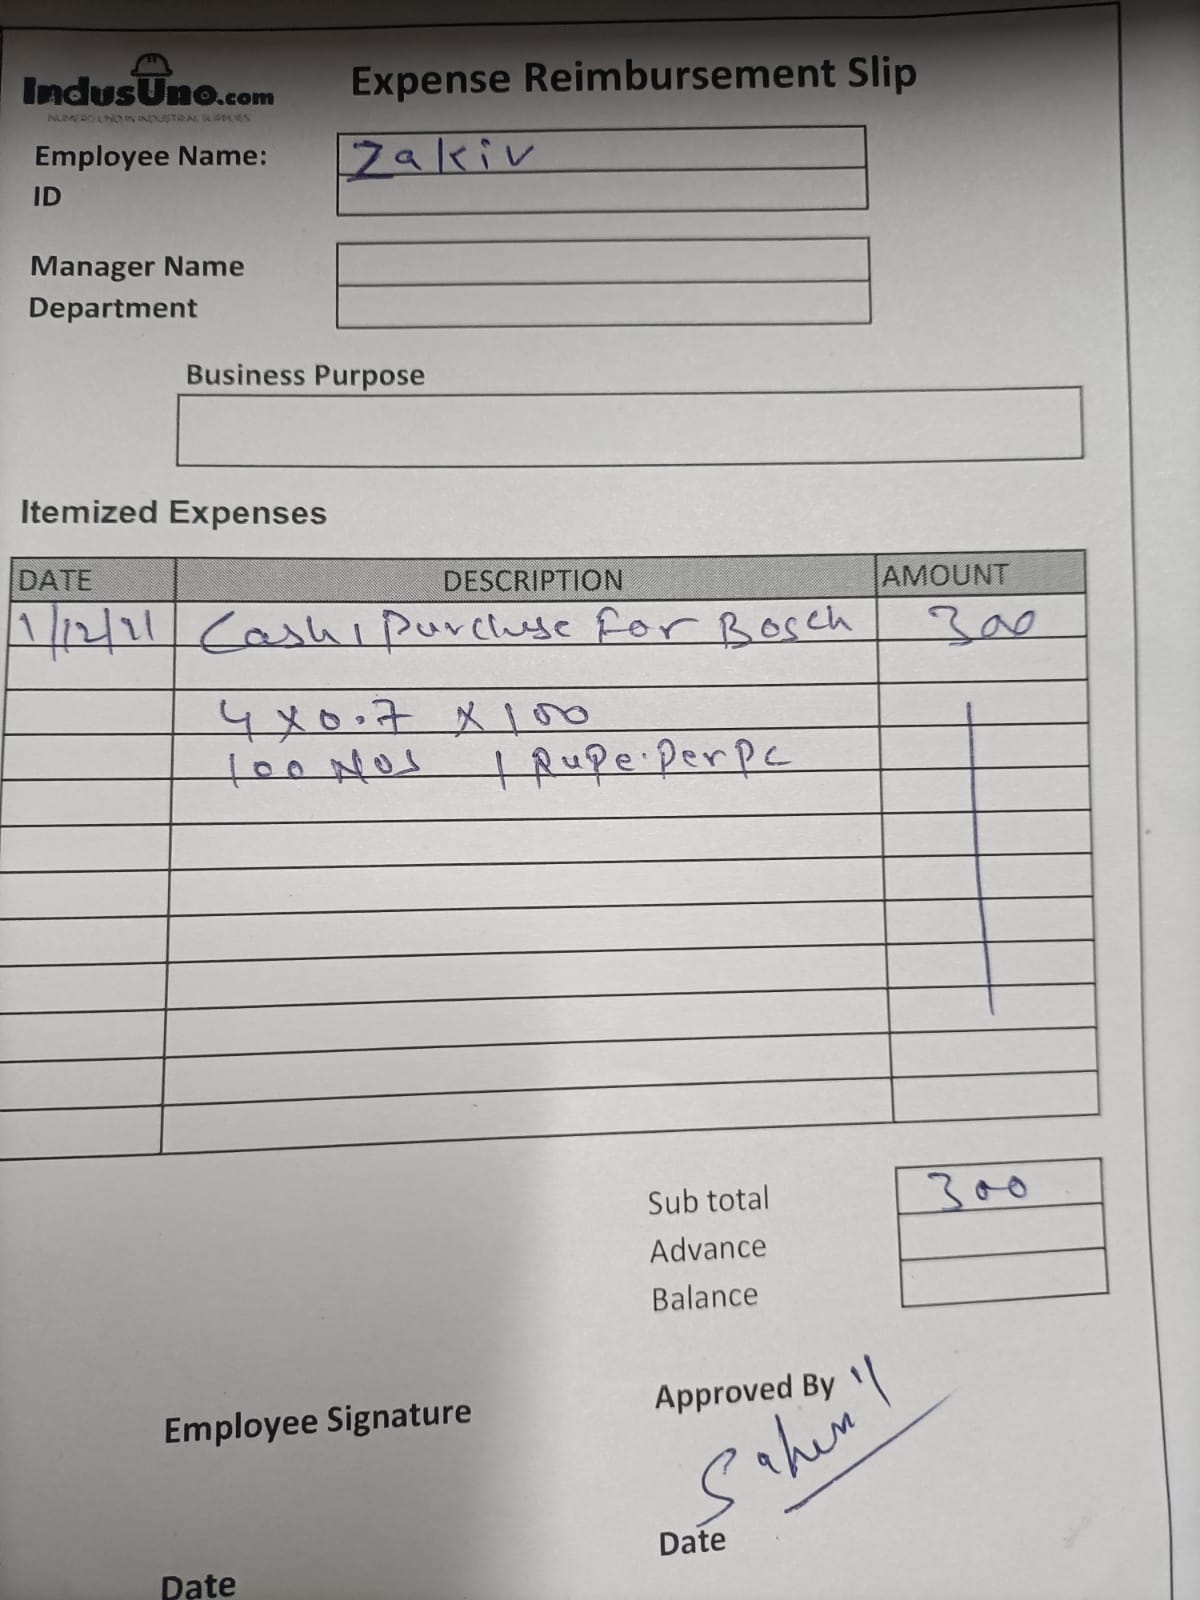 IndusUno.com
NUMERO UNO IN INDUSTRIAL SUPPLIES
Expense Reimbursement Slip
Employee Name: Zakir
ID
Manager Name
Department
Business Purpose
Itemized Expenses
DATE DESCRIPTION AMOUNT
1/12/21 Cash, Purchse For Bosch 300
4 x 0.7 x 100
100 Nos 1 Rupe. Per Pc
Sub total 300
Advance
Balance
Approved By
Employee Signature
Date
Date